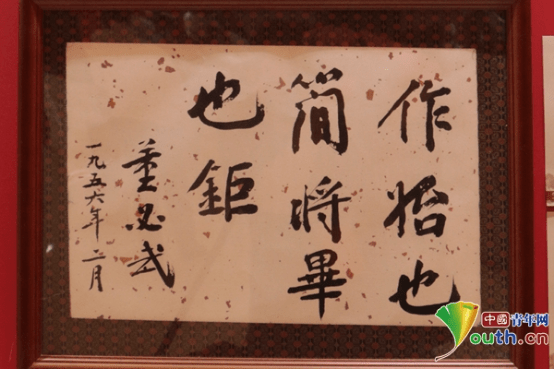 作始也
簡將畢
也鉅
董必武
一九五六年二月
中國青年网
youth.cn